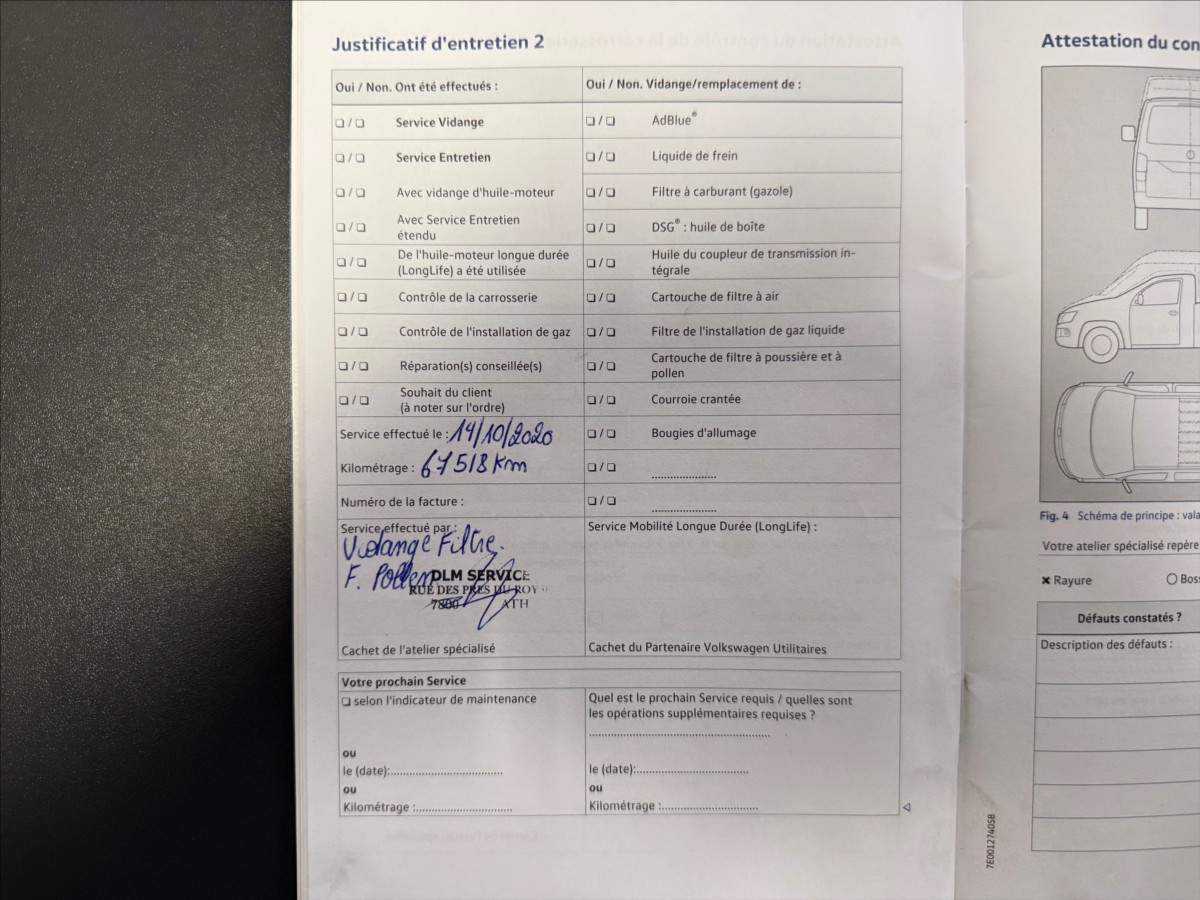 Justificatif d'entretien 2
Oui / Non. Ont été effectués :
❑ / ❑ Service Vidange
❑ / ❑ Service Entretien
❑ / ❑ Avec vidange d'huile-moteur
❑ / ❑ Avec Service Entretien
étendu
❑ / ❑ De l'huile-moteur longue durée
(LongLife) a été utilisée
❑ / ❑ Contrôle de la carrosserie
❑ / ❑ Contrôle de l'installation de gaz
❑ / ❑ Réparation(s) conseillée(s)
❑ / ❑ Souhait du client
(à noter sur l'ordre)
Service effectué le : 14/10/2020
Kilométrage : 67518 Km
Numéro de la facture :
Service effectué par :
Vidange Filtre.
F. Pollen
DLM SERVICE
RUE DES PRES DU ROY
7800 ATH
Cachet de l'atelier spécialisé
Oui / Non. Vidange/remplacement de :
❑ / ❑ AdBlue®
❑ / ❑ Liquide de frein
❑ / ❑ Filtre à carburant (gazole)
❑ / ❑ DSG® : huile de boîte
❑ / ❑ Huile du coupleur de transmission in-
tégrale
❑ / ❑ Cartouche de filtre à air
❑ / ❑ Filtre de l'installation de gaz liquide
❑ / ❑ Cartouche de filtre à poussière et à
pollen
❑ / ❑ Courroie crantée
❑ / ❑ Bougies d'allumage
❑ / ❑ .....................
❑ / ❑ .....................
Service Mobilité Longue Durée (LongLife) :
Cachet du Partenaire Volkswagen Utilitaires
Votre prochain Service
❑ selon l'indicateur de maintenance
ou
le (date):....................................
ou
Kilométrage :...............................
Quel est le prochain Service requis / quelles sont
les opérations supplémentaires requises ?
...........................................................
le (date):....................................
ou
Kilométrage :...............................
Attestation du con
Fig. 4 Schéma de principe : vala
Votre atelier spécialisé repère
✖ Rayure ○ Bos
Défauts constatés ?
Description des défauts :
7E0012740SB